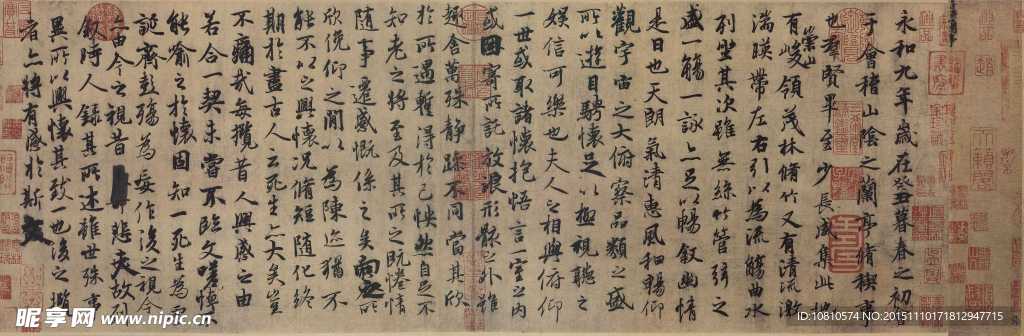 永和九年歲在癸丑暮春之初會
于會稽山陰之蘭亭脩稧事
也群賢畢至少長咸集此地
有崇山峻領茂林脩竹又有清流激
湍暎帶左右引以為流觴曲水
列坐其次雖無絲竹管弦之
盛一觴一詠亦足以暢敘幽情
是日也天朗氣清惠風和暢仰
觀宇宙之大俯察品類之盛
所以遊目騁懷足以極視聽之
娛信可樂也夫人之相與俯仰
一世或取諸懷抱悟言一室之內
或因寄所託放浪形骸之外雖
趣舍萬殊靜躁不同當其欣
於所遇暫得於己怏然自足不
知老之將至及其所之既惓情
隨事遷感慨係之矣向之所
欣俛仰之間以為陳迹猶不
能不以之興懷況脩短隨化終
期於盡古人云死生亦大矣豈
不痛哉每攬昔人興感之由
若合一契未嘗不臨文嗟悼不
能喻之於懷固知一死生為虛
誕齊彭殤為妄作後之視今
亦由今之視昔悲夫故列
敘時人錄其所述雖世殊事
異所以興懷其致一也後之攬
者亦將有感於斯文
昵享网 www.nipic.cn
ID:10810574 NO:20151110171812947715